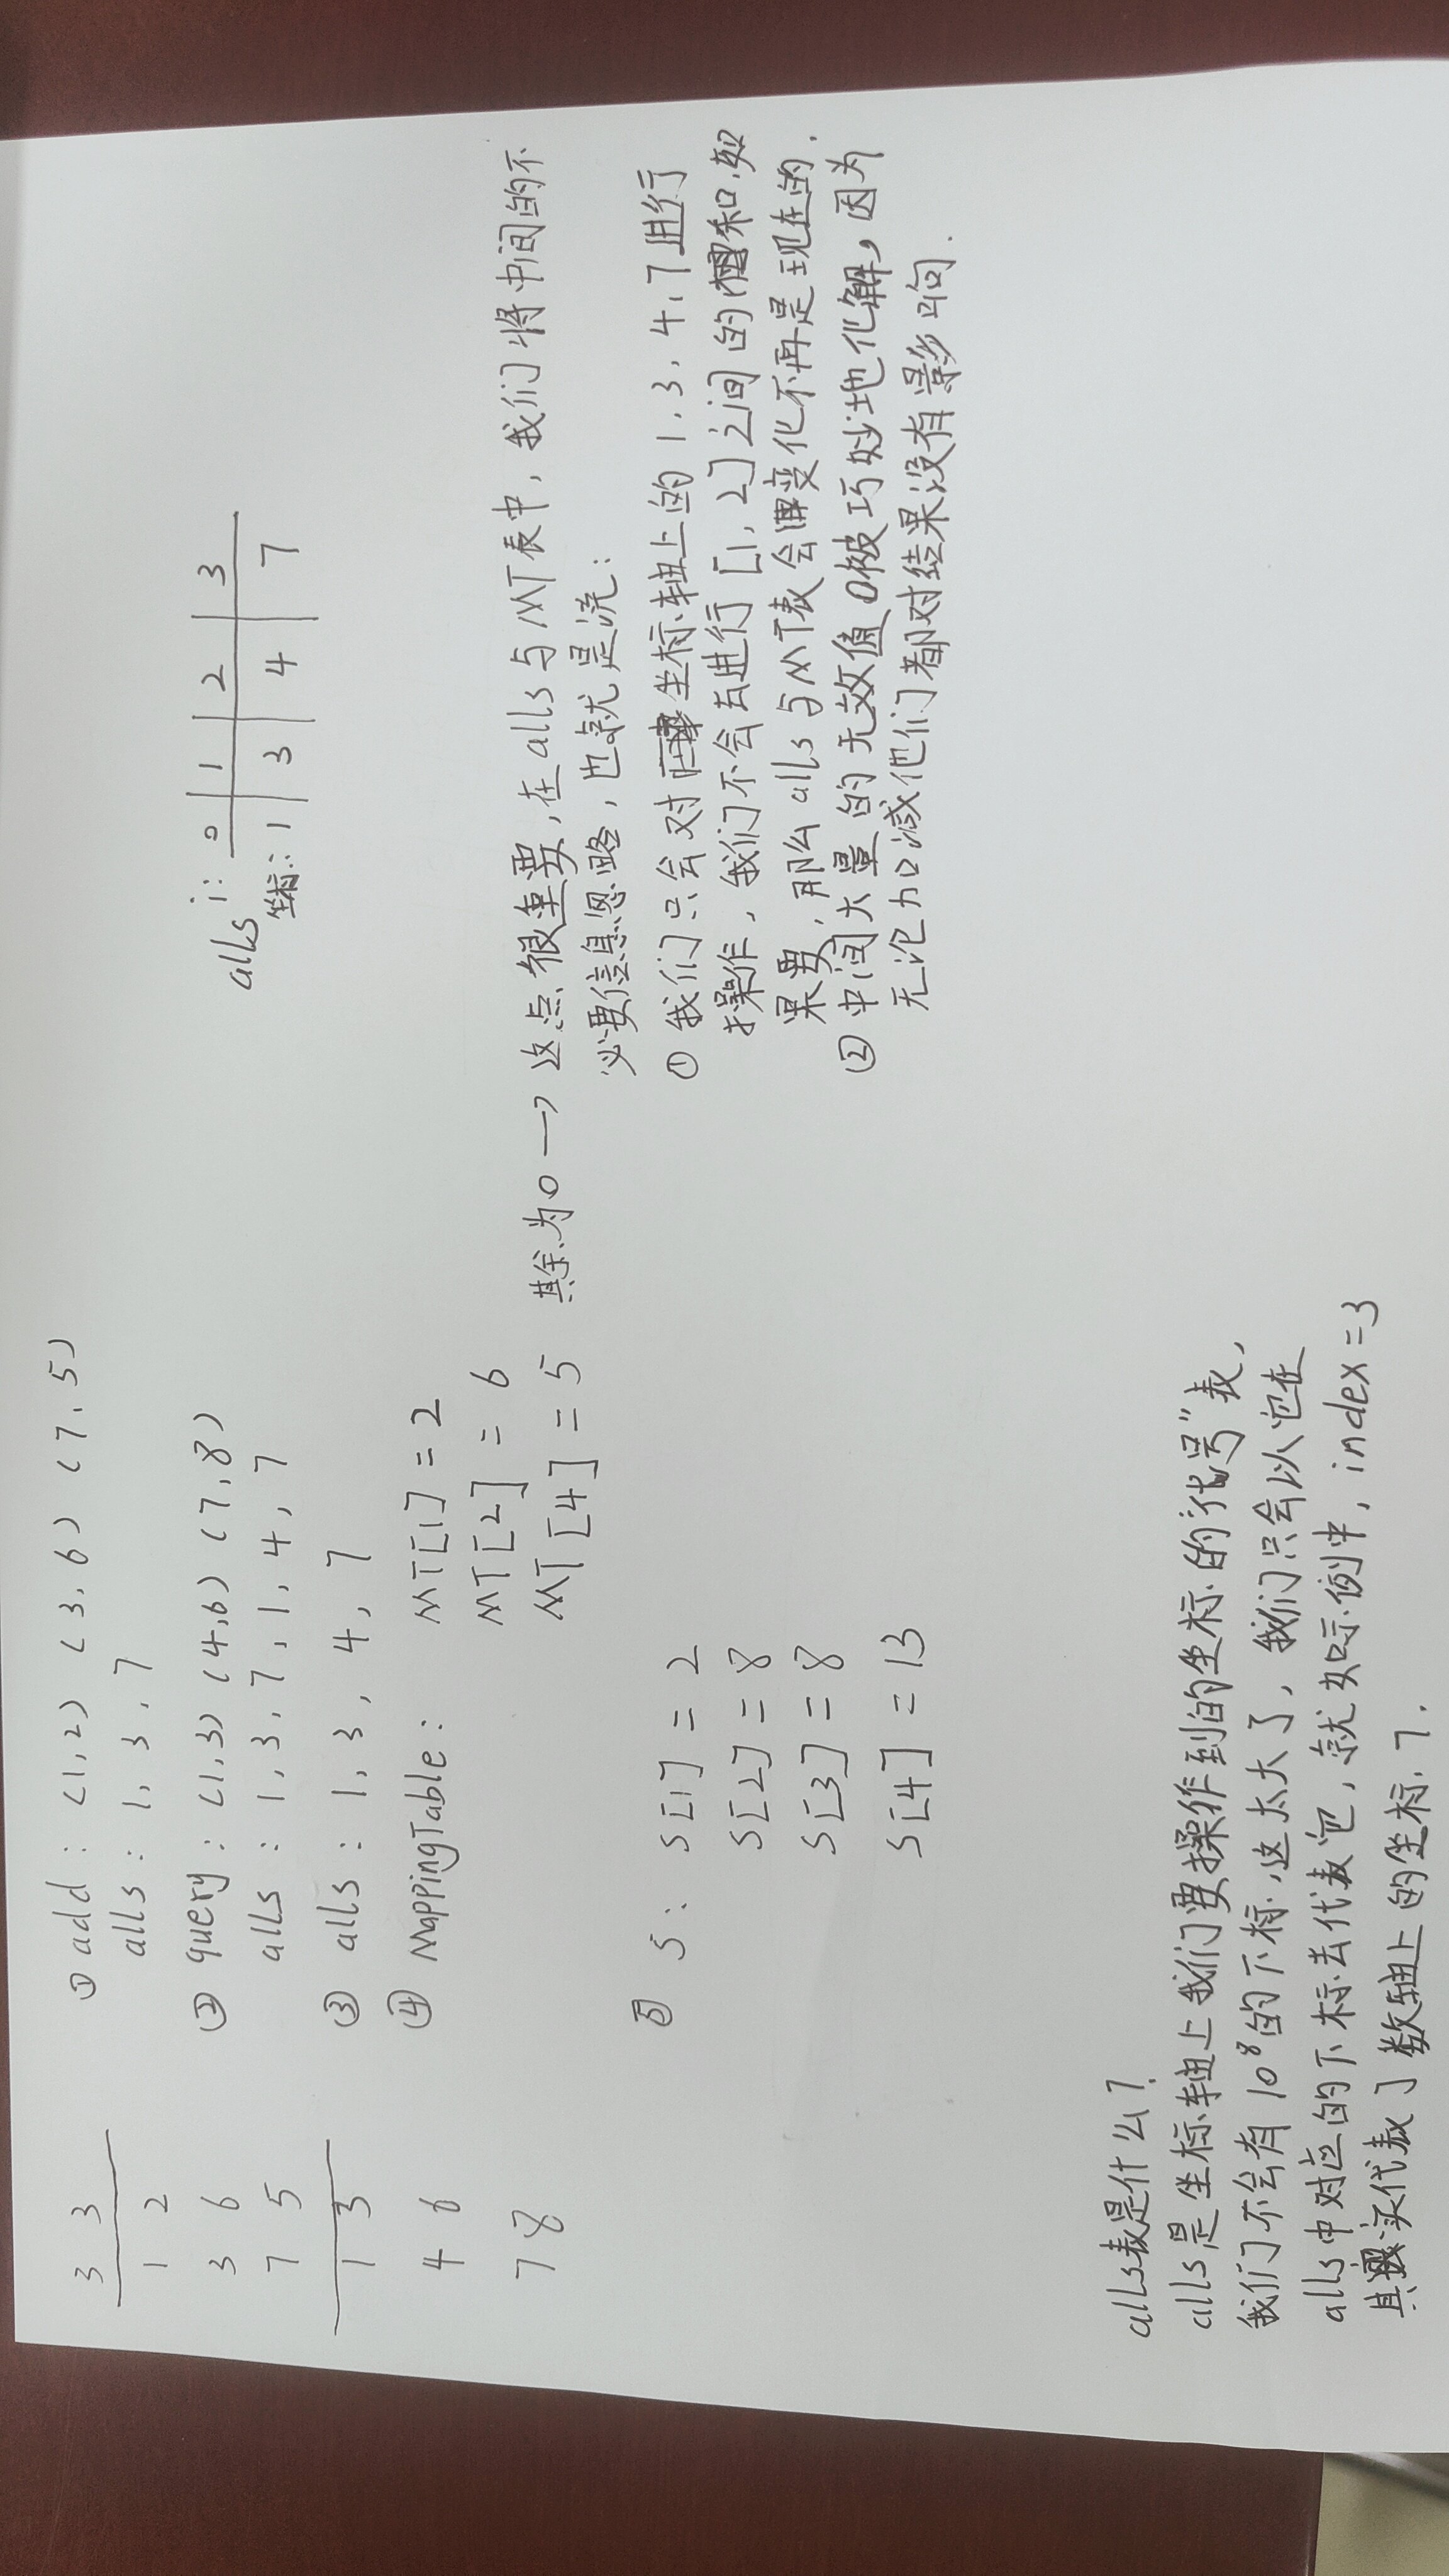 3 3
1 2
3 6
7 5
1 3
4 6
7 8
① add : (1,2) (3,6) (7,5)
alls : 1, 3, 7
② query : (1,3) (4,6) (7,8)
alls : 1, 3, 7, 1, 4, 7
③ alls : 1, 3, 4, 7
④ MappingTable : MT[1] = 2
MT[2] = 6
MT[4] = 5 其余为0 → 这点很重要,在alls与MT表中,我们将中间的不
必要信息忽略,也就是说:
① 我们只会对坐标轴上的1, 3, 4, 7进行
操作,我们不会去进行[1, 2]之间的和,如
果要,那么alls与MT表会变化不再是现在的.
② 中间大量的无效值0被巧妙地化解,因为
无论加减他们都对结果没有影响.
alls i: 0 1 2 3
坐标: 1 3 4 7
⑤ S : S[1] = 2
S[2] = 8
S[3] = 8
S[4] = 13
alls表是什么?
alls是坐标轴上我们要操作到的坐标的"代号"表,
我们不会有10⁸的下标,这太大了,我们只会以它在
alls中对应的下标去代表它,就如示例中,index=3
其实代表了数轴上的坐标7.